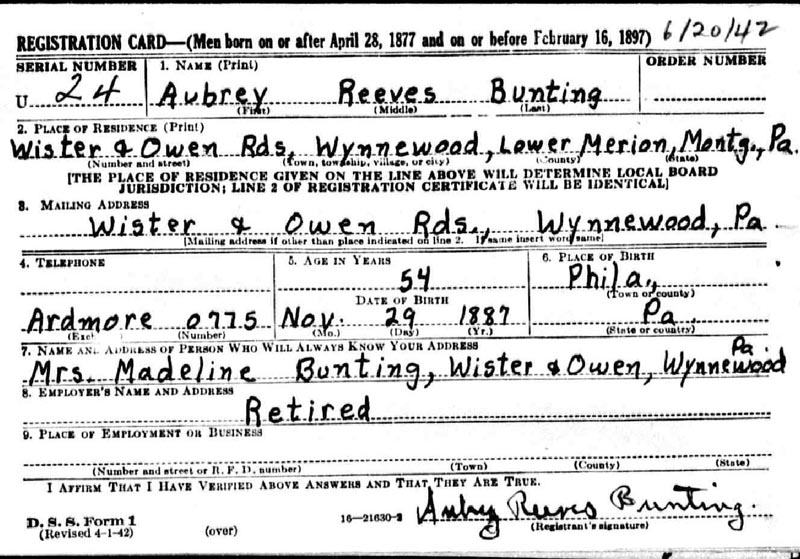 REGISTRATION CARD—(Men born on or after April 28, 1877 and on or before February 16, 1897) 6/20/42
SERIAL NUMBER 1. NAME (Print) ORDER NUMBER
U 24 Aubrey Reeves Bunting
(First) (Middle) (Last)
2. PLACE OF RESIDENCE (Print)
Wister & Owen Rds, Wynnewood, Lower Merion, Montg., Pa.
(Number and street) (Town, township, village, or city) (County) (State)
[THE PLACE OF RESIDENCE GIVEN ON THE LINE ABOVE WILL DETERMINE LOCAL BOARD
JURISDICTION; LINE 2 OF REGISTRATION CERTIFICATE WILL BE IDENTICAL]
3. MAILING ADDRESS
Wister & Owen Rds., Wynnewood, Pa.
[Mailing address if other than place indicated on line 2. If same insert word same]
4. TELEPHONE 5. AGE IN YEARS 6. PLACE OF BIRTH
54 Phila.,
DATE OF BIRTH (Town or county)
Ardmore 0775 Nov. 29 1887 Pa.
(Exch (Number) (Mo.) (Day) (Yr.) (State or country)
7. NAME AND ADDRESS OF PERSON WHO WILL ALWAYS KNOW YOUR ADDRESS
Mrs. Madeline Bunting, Wister & Owen, Wynnewood Pa.
8. EMPLOYER'S NAME AND ADDRESS
Retired
9. PLACE OF EMPLOYMENT OR BUSINESS
(Number and street or R. F. D. number) (Town) (County) (State)
I AFFIRM THAT I HAVE VERIFIED ABOVE ANSWERS AND THAT THEY ARE TRUE.
D. S. S. Form 1 16—21630-2 Aubrey Reeves Bunting.
(Revised 4-1-42) (over) (Registrant's signature)